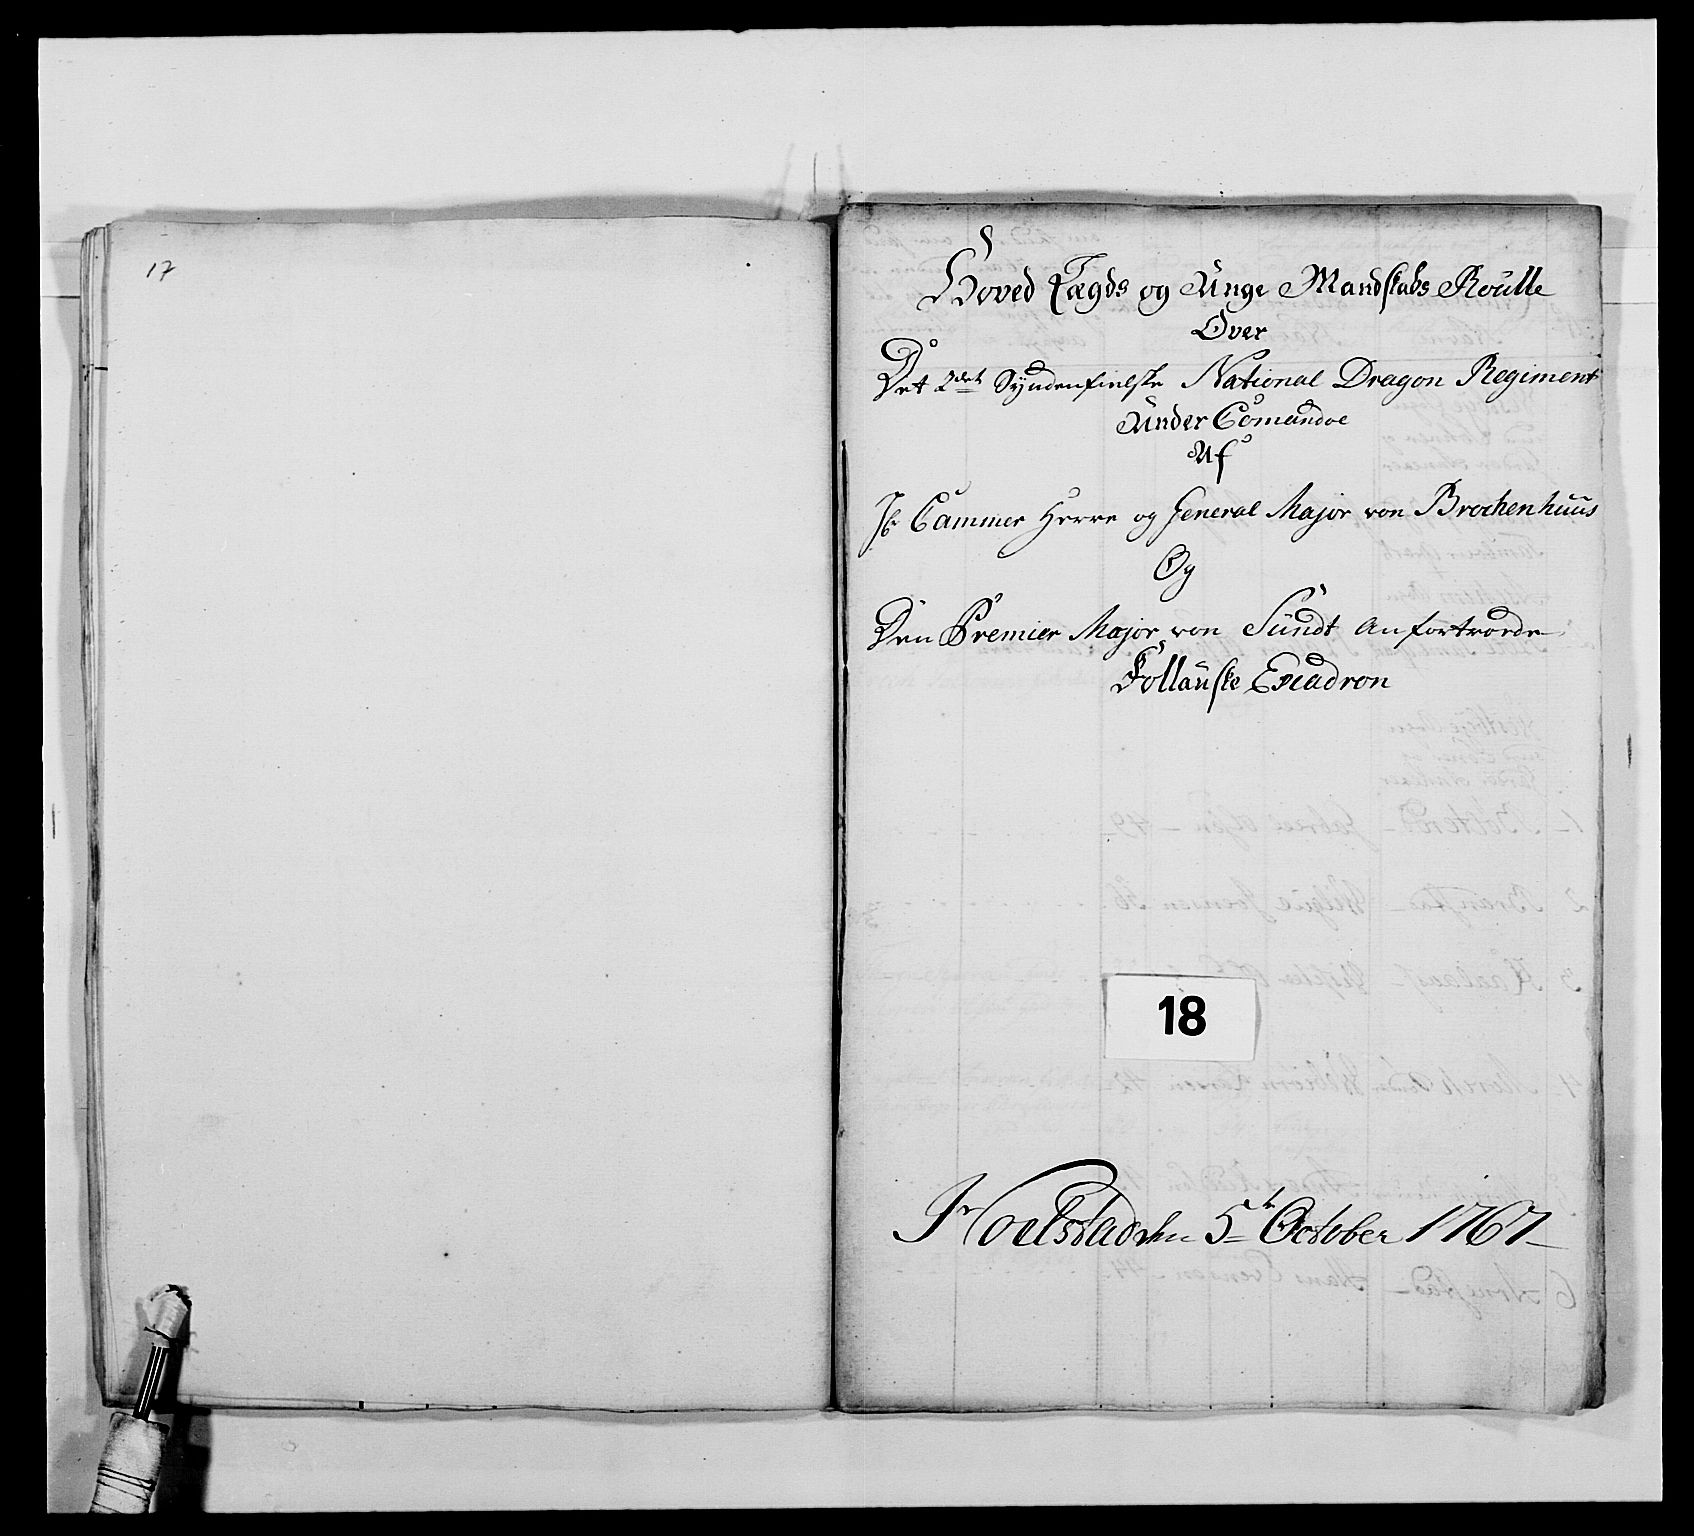 17
Hoved Lægds og Unge Mandskabs Roulle
Over
Det 2det Syndenfielske National Dragon Regiment
Under Comandoe
Af
Hr Cammer Herre og General Major von Brochenhuus
Og
Den Premier Major von Sundt Anfortroede
Follauske Escadron
18
den 5t October 1767